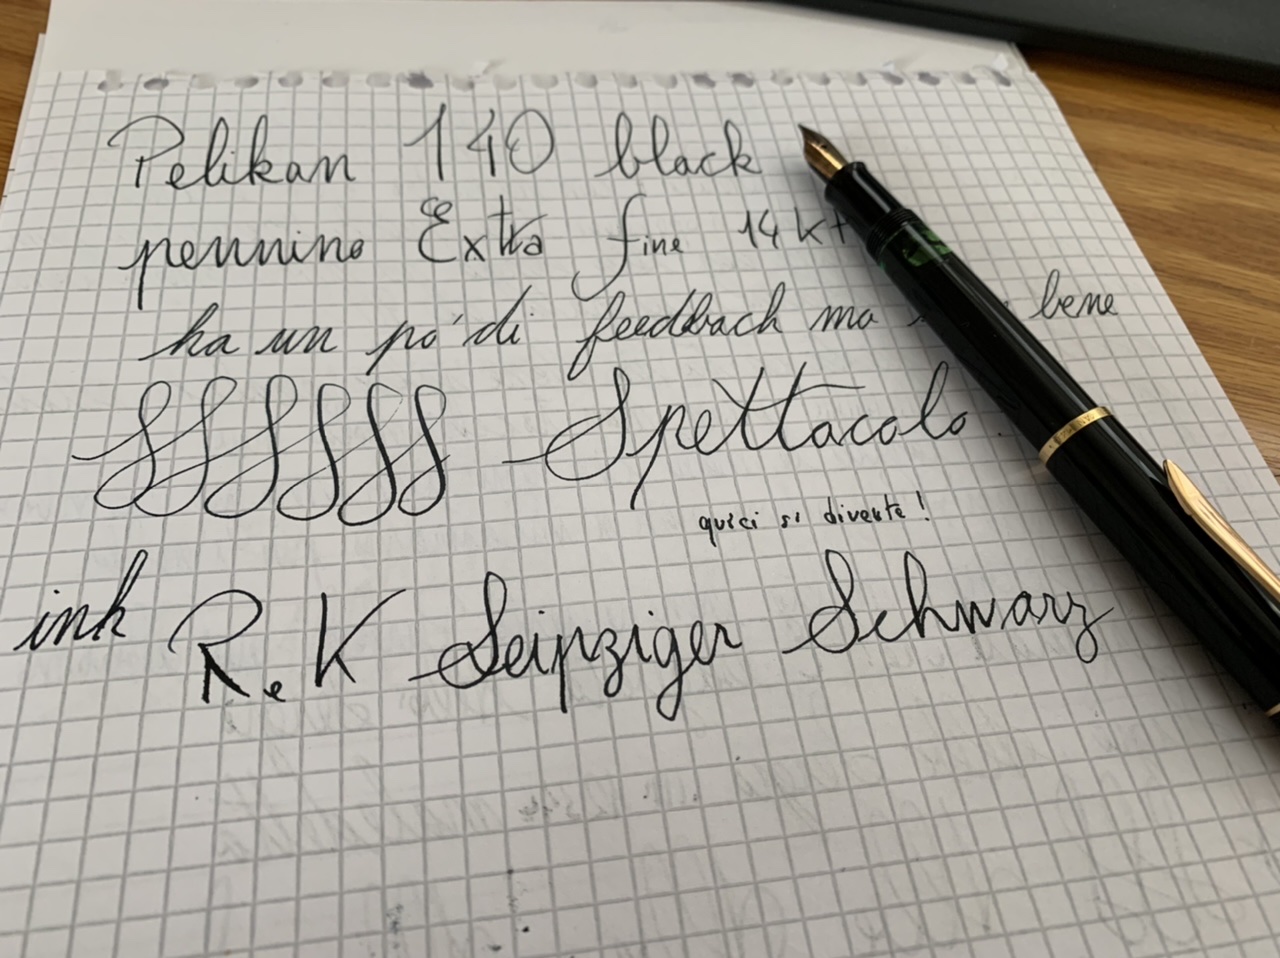 Pelikan 140 black
pennino Extra fine 14 kt
ha un po' di feedback ma bene
Spettacolo.
quici si diverte!
ink R.K Leipziger Schwarz